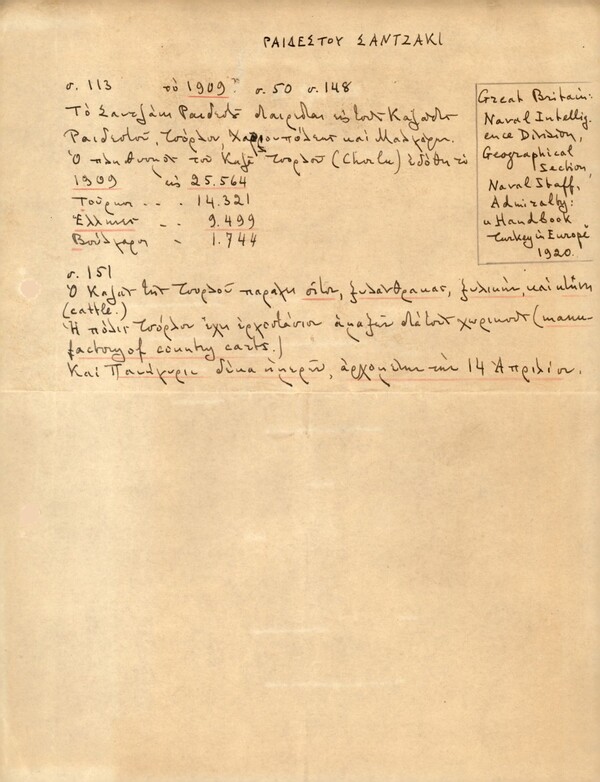 ΡΑΙΔΕΣΤΟΥ ΣΑΝΤΖΑΚΙ
σ. 113 τὸ 1909 σ. 50 σ. 148
Τὸ Σαντζάκι Ραιδεστ διαιρεῖται εἰς τοὺς Καζάδες
Ραιδεστοῦ, Τσόρλου, Χαριουπόλεως καὶ Μαλγάρων.
Ὁ πληθυσμὸς τοῦ Καζᾶ Τσορλοῦ (Chorlu) ἐδόθη τὸ
1909 εἰς 25.564
Τοῦρκοι . . 14.321
Ἕλληνες . . 9.499
Βούλγαροι " 1.744
σ. 151
Ὁ Καζᾶς τῆς Τσορλοῦ παράγει σῖτον, ξυλάνθρακας, ξυλικήν, καὶ κτήνη
(cattle.)
Ἡ πόλις Τσόρλου ἔχει ἐργοστάσιον ἁμαξῶν διὰ τοὺς χωρικοὺς (manu-
factory of country carts.)
Καὶ Πανήγυρις δέκα ἡμερῶν, ἀρχομένη τὴν 14 Ἀπριλίου.
Great Britain:
Naval Intellig-
ence Division,
Geographical
Section,
Naval Staff,
Admiralty:
a Handbook
Turkey in Europe
1920.